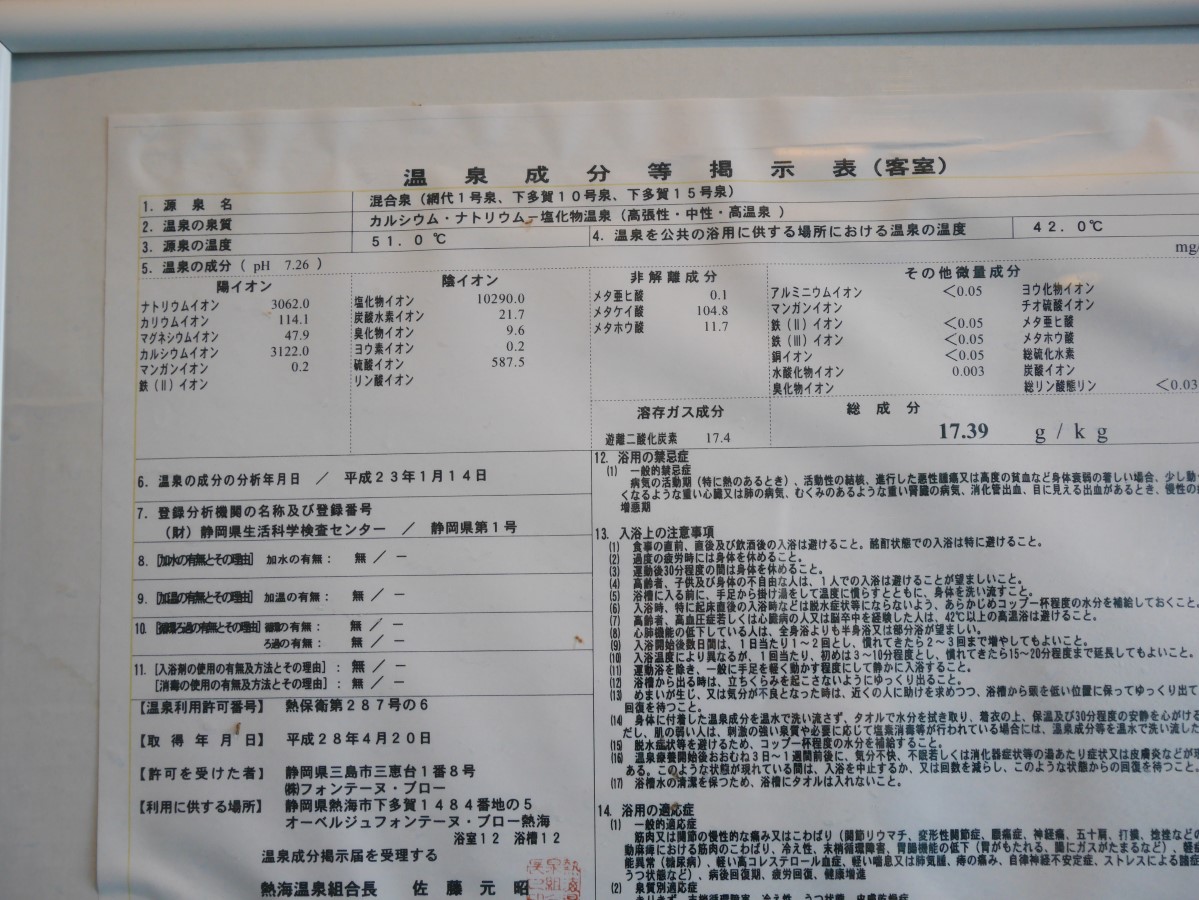 温泉成分等掲示表(客室)
1. 源泉名 混合泉(網代1号泉、下多賀10号泉、下多賀15号泉)
2. 温泉の泉質 カルシウム・ナトリウム−塩化物温泉(高張性・中性・高温泉)
3. 源泉の温度 51.0℃ 4. 温泉を公共の浴用に供する場所における温泉の温度 42.0℃
5. 温泉の成分( pH 7.26 ) mg/
陽イオン
ナトリウムイオン 3062.0
カリウムイオン 114.1
マグネシウムイオン 47.9
カルシウムイオン 3122.0
マンガンイオン 0.2
鉄(Ⅱ)イオン
陰イオン
塩化物イオン 10290.0
炭酸水素イオン 21.7
臭化物イオン 9.6
ヨウ素イオン 0.2
硫酸イオン 587.5
リン酸イオン
非解離成分
メタ亜ヒ酸 0.1
メタケイ酸 104.8
メタホウ酸 11.7
その他微量成分
アルミニウムイオン <0.05
マンガンイオン
鉄(Ⅱ)イオン <0.05
鉄(Ⅲ)イオン <0.05
銅イオン <0.05
水酸化物イオン 0.003
臭化物イオン
ヨウ化物イオン
チオ硫酸イオン
メタ亜ヒ酸
メタホウ酸
総硫化水素
炭酸イオン
総リン酸態リン <0.03
溶存ガス成分
遊離二酸化炭素 17.4
総成分
17.39 g/kg
6. 温泉の成分の分析年月日 / 平成23年1月14日
7. 登録分析機関の名称及び登録番号
(財)静岡県生活科学検査センター / 静岡県第1号
8. [加水の有無とその理由] 加水の有無: 無/−
9. [加温の有無とその理由] 加温の有無: 無/−
10. [循環ろ過の有無とその理由] 循環の有無: 無/−
ろ過の有無: 無/−
11. [入浴剤の使用の有無及方法とその理由]: 無/−
[消毒の使用の有無及方法とその理由]: 無/−
【温泉利用許可番号】 熱保衛第287号の6
【取得年月日】 平成28年4月20日
【許可を受けた者】 静岡県三島市三恵台1番8号
㈱フォンテーヌ・ブロー
【利用に供する場所】 静岡県熱海市下多賀1484番地の5
オーベルジュフォンテーヌ・ブロー熱海
浴室12 浴槽12
温泉成分掲示届を受理する
熱海温泉組合長 佐藤元昭
12. 浴用の禁忌症
(1) 一般的禁忌症
病気の活動期(特に熱のあるとき)、活動性の結核、進行した悪性腫瘍又は高度の貧血など身体衰弱の著しい場合、少し動
くなるような重い心臓又は肺の病気、むくみのあるような重い腎臓の病気、消化管出血、目に見える出血があるとき、慢性の
増悪期
13. 入浴上の注意事項
(1) 食事の直前、直後及び飲酒後の入浴は避けること。酩酊状態での入浴は特に避けること。
(2) 過度の疲労時には身体を休めること。
(3) 運動後30分程度の間は身体を休めること。
(4) 高齢者、子供及び身体の不自由な人は、1人での入浴は避けることが望ましいこと。
(5) 浴槽に入る前に、手足から掛け湯をして温度に慣らすとともに、身体を洗い流すこと。
(6) 入浴時、特に起床直後の入浴時などは脱水症状等にならないよう、あらかじめコップ一杯程度の水分を補給しておくこと。
(7) 高齢者、高血圧症若しくは心臓病の人又は脳卒中を経験した人は、42℃以上の高温浴は避けること。
(8) 心肺機能の低下している人は、全身浴よりも半身浴又は部分浴が望ましい。
(9) 入浴開始後数日間は、1日当たり1〜2回とし、慣れてきたら2〜3回まで増やしてもよいこと。
(10) 入浴温度により異なるが、1回当たり、初めは3〜10分程度とし、慣れてきたら15〜20分程度まで延長してもよいこと。
(11) 運動浴を除き、一般に手足を軽く動かす程度にして静かに入浴すること。
(12) 浴槽から出る時は、立ちくらみを起こさないようにゆっくり出ること。
(13) めまいが生じ、又は気分が不良となった時は、近くの人に助けを求めつつ、浴槽から頭を低い位置に保ってゆっくり出て
回復を待つこと。
(14) 身体に付着した温泉成分を温水で洗い流さず、タオルで水分を拭き取り、着衣の上、保温及び30分程度の安静を心がける
だし、肌の弱い人は、刺激の強い泉質や必要に応じて塩素消毒等が行われている場合には、温泉成分等を温水で洗い流した
(15) 脱水症状等を避けるため、コップ一杯程度の水分を補給すること。
(16) 温泉療養開始後おおむね3日〜1週間前後に、気分不快、不眠若しくは消化器症状等の湯あたり症状又は皮膚炎などが現
ある。このような状態が現れている間は、入浴を中止するか、又は回数を減らし、このような状態からの回復を待つこと。
(17) 浴槽水の清潔を保つため、浴槽にタオルは入れないこと。
14. 浴用の適応症
(1) 一般的適応症
筋肉又は関節の慢性的な痛み又はこわばり(関節リウマチ、変形性関節症、腰痛症、神経痛、五十肩、打撲、捻挫などの
動麻痺における筋肉のこわばり、冷え性、末梢循環障害、胃腸機能の低下(胃がもたれる、腸にガスがたまるなど)、軽症
能異常(糖尿病)、軽い高コレステロール血症、軽い喘息又は肺気腫、痔の痛み、自律神経不安定症、ストレスによる諸症
うつ状態など)、病後回復期、疲労回復、健康増進
(2) 泉質別適応症
きりきず、末梢循環障害、冷え性、うつ状態、皮膚乾燥症